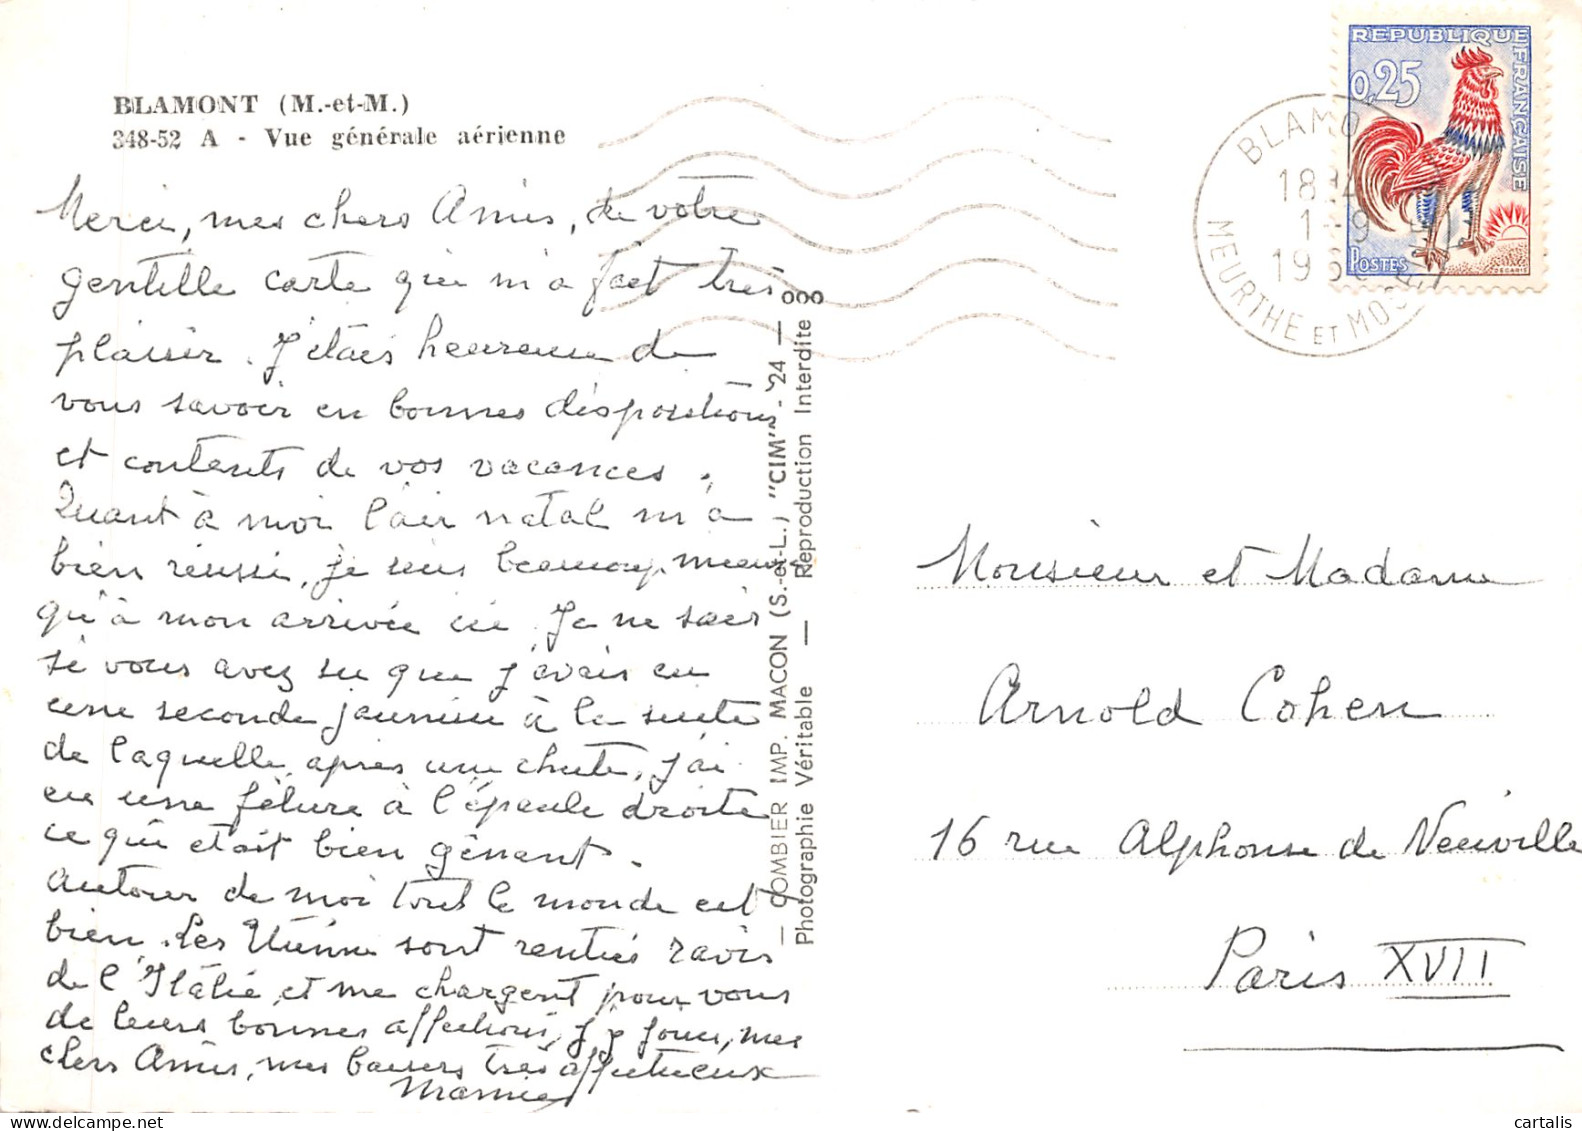 BLAMONT (M.-et-M.)
348-52 A - Vue générale aérienne
Merci, mes chers Amis, de votre
gentille carte qui m'a fait très
plaisir. J'étais heureuse de
vous savoir en bonnes dispositions
et contents de vos vacances.
Quant à moi l'air natal m'a
bien réussi, je suis beaucoup mieux
qu'à mon arrivée ici. Je ne sais
si vous avez su que j'avais eu
une seconde jaunisse à la suite
de laquelle, après une chute, j'ai
eu une fêlure à l'épaule droite
ce qui était bien gênant.
Autour de moi tout le monde est
bien. Les sont rentrés ravis
de l'Italie, et me chargent pour vous
de leurs bonnes affections, j'y joins, mes
chers Amis, mes baisers très affectueux
Mamie
— COMBIER IMP. MACON (S.-et-L.) "CIM" - 24 —
Photographie Véritable — Reproduction Interdite
000
REPUBLIQUE FRANÇAISE
0,25
POSTES
DECARIS
BLAMO
18
1-9
196
MEURTHE ET MOS
Monsieur et Madame
Arnold Cohen
16 rue Alphonse de Neuville
Paris XVII
cartalis